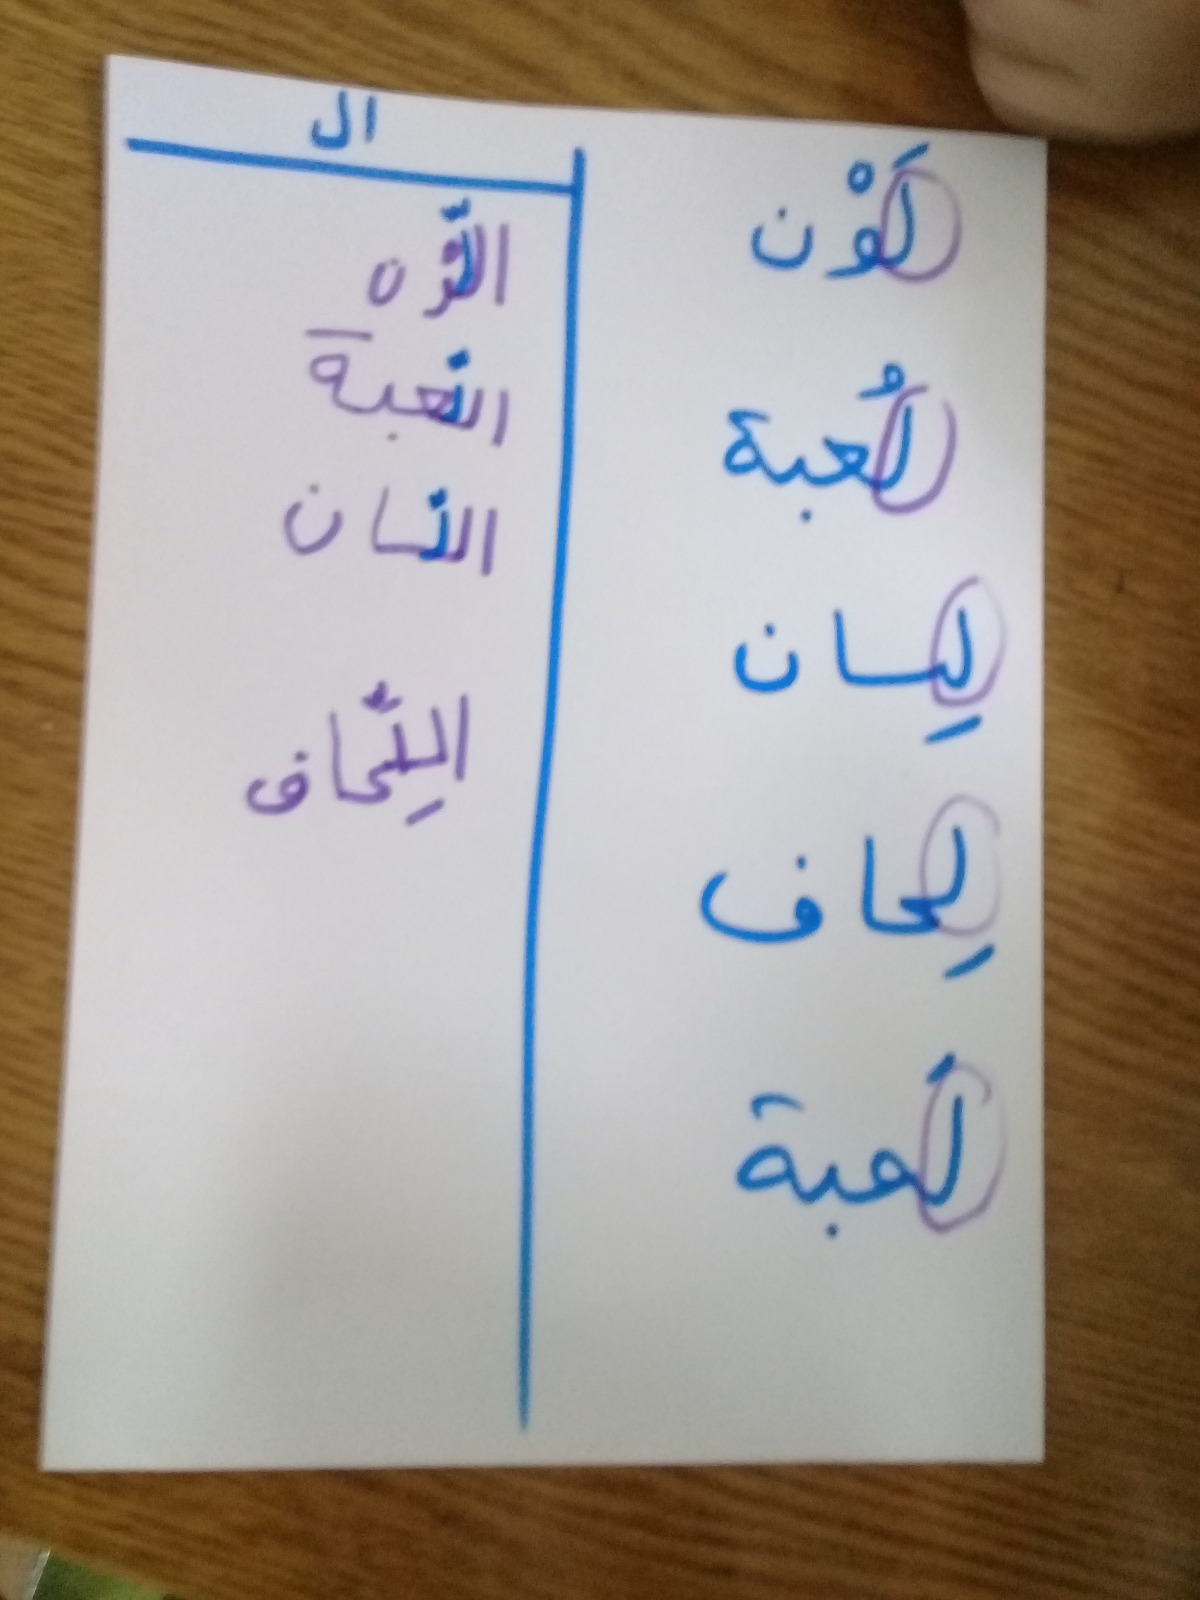 ال
لَوْن
لُعبة
لِسان
لِحاف
لَعبة
اللّون
اللعبة
اللسان
اللِّحاف